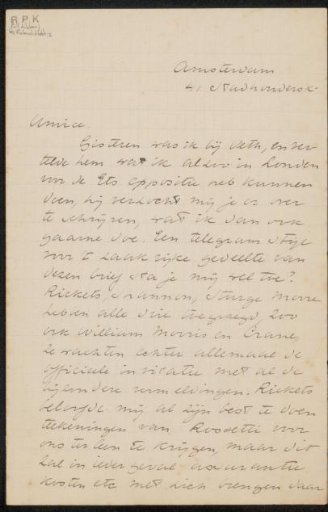 R P K
Amsterdam
41 Stadhoudersk
Amice.
Gisteren was ik bij Veth, en ver-
telde hem wat ik al zoo in Londen
voor de Ets expositie heb kunnen
doen, hij verzocht mij je er over
te schrijven, wat ik dan ook
gaarne doe. Een telegram
voor 't zakelijke gedeelte van
dezen brief sta je mij wel toe?
Rickets, Shannon, Sturge Moore
hebben alle drie toegezegd, zoo
ook William Morris en Crane,
ze wachten echter allemaal de
officieele invitatie met al de
bijzondere vermeldingen. Rickets
beloofde mij al zijn best te doen
teekeningen van Rossetti voor
ons te leen te krijgen, maar dit
zal in ieder geval assurantie
kosten etc met zich brengen daar